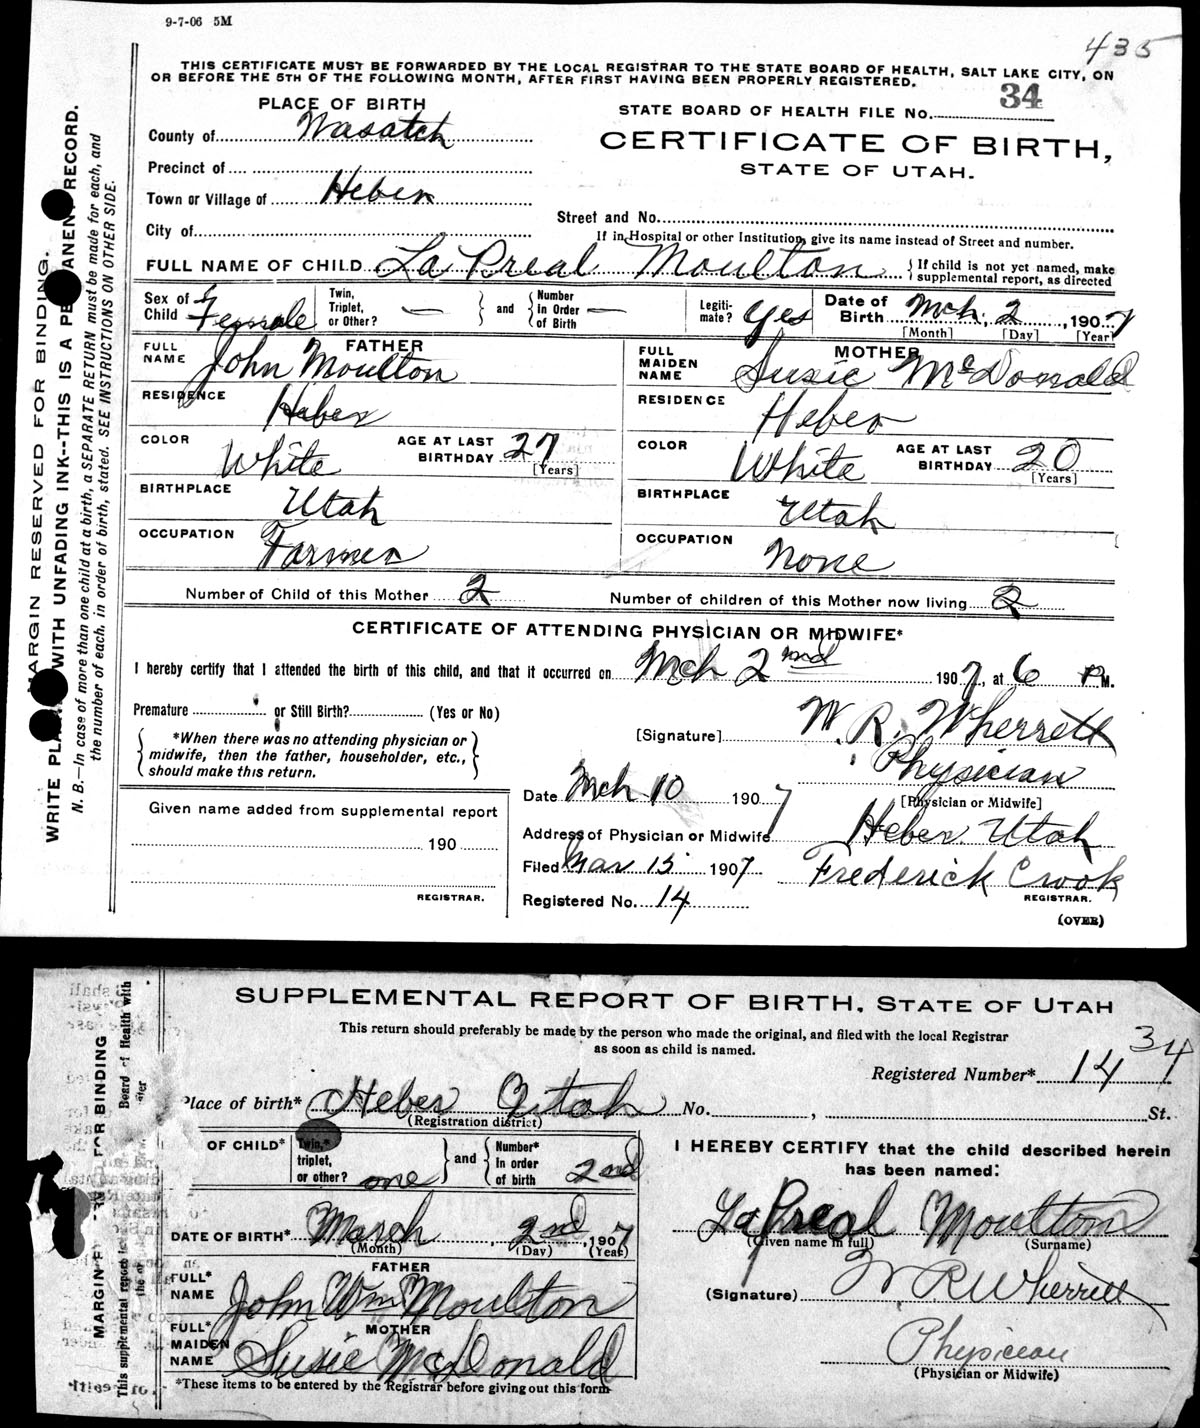 9-7-06 5M
435
THIS CERTIFICATE MUST BE FORWARDED BY THE LOCAL REGISTRAR TO THE STATE BOARD OF HEALTH, SALT LAKE CITY, ON
OR BEFORE THE 5TH OF THE FOLLOWING MONTH, AFTER FIRST HAVING BEEN PROPERLY REGISTERED.
PLACE OF BIRTH
STATE BOARD OF HEALTH FILE No. 34
County of Wasatch
CERTIFICATE OF BIRTH,
STATE OF UTAH.
Precinct of
Town or Village of Heber
Street and No.
City of
If in Hospital or other Institution, give its name instead of Street and number.
FULL NAME OF CHILD La Preal Moulton { If child is not yet named, make supplemental report, as directed
Sex of Child Female
Twin, Triplet, or Other? — and Number in Order of Birth —
Legitimate? Yes
Date of Birth Mch. 2, 1907
[Month] [Day] [Year]
FATHER
FULL NAME John Moulton
RESIDENCE Heber
COLOR White AGE AT LAST BIRTHDAY 27
[Years]
BIRTHPLACE Utah
OCCUPATION Farmer
MOTHER
FULL MAIDEN NAME Susie McDonald
RESIDENCE Heber
COLOR White AGE AT LAST BIRTHDAY 20
[Years]
BIRTHPLACE Utah
OCCUPATION None
Number of Child of this Mother 2 Number of children of this Mother now living 2
CERTIFICATE OF ATTENDING PHYSICIAN OR MIDWIFE*
I hereby certify that I attended the birth of this child, and that it occurred on Mch 2nd 1907, at 6 P.M.
Premature or Still Birth? (Yes or No)
*When there was no attending physician or
midwife, then the father, householder, etc.,
should make this return.
[Signature] W. R. Wherritt
Physician
[Physician or Midwife]
Date Mch 10 1907
Address of Physician or Midwife Heber. Utah
Filed Mar 15 1907 Frederick Crook
REGISTRAR.
Registered No. 14
(OVER)
Given name added from supplemental report
190
REGISTRAR.
MARGIN RESERVED FOR BINDING.
WRITE PLAINLY WITH UNFADING INK--THIS IS A PERMANENT RECORD.
N. B.—In case of more than one child at a birth, a SEPARATE RETURN must be made for each, and
the number of each, in order of birth, stated. SEE INSTRUCTIONS ON OTHER SIDE.
SUPPLEMENTAL REPORT OF BIRTH, STATE OF UTAH
This return should preferably be made by the person who made the original, and filed with the local Registrar
as soon as child is named.
34
Registered Number* 14
Place of birth* Heber Utah No. , St.
(Registration district)
OF CHILD* Twin,* triplet, or other? one and Number* in order of birth 2nd
DATE OF BIRTH* March 2nd, 1907
(Month) (Day) (Year)
FATHER
FULL* NAME John Wm Moulton
MOTHER
FULL* MAIDEN NAME Susie McDonald
*These items to be entered by the Registrar before giving out this form
I HEREBY CERTIFY that the child described herein
has been named:
La Preal Moulton
(Given name in full) (Surname)
(Signature) W R Wherritt
Physician
(Physician or Midwife)
MARGIN FOR BINDING
This supplemental report
Board of Health with